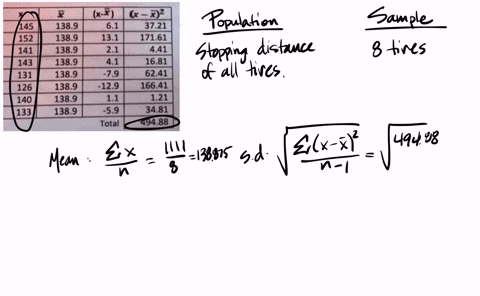 x̄ (x-x̄) (x – x̄)²
145 138.9 6.1 37.21
152 138.9 13.1 171.61
141 138.9 2.1 4.41
143 138.9 4.1 16.81
131 138.9 -7.9 62.41
126 138.9 -12.9 166.41
140 138.9 1.1 1.21
133 138.9 -5.9 34.81
Total 494.88
Population Sample
Stopping distance 8 tires
of all tires.
Mean: Σx/n = 1111/8 = 138.875 s.d. √(Σ(x-x̄)²/n-1) = √494.88